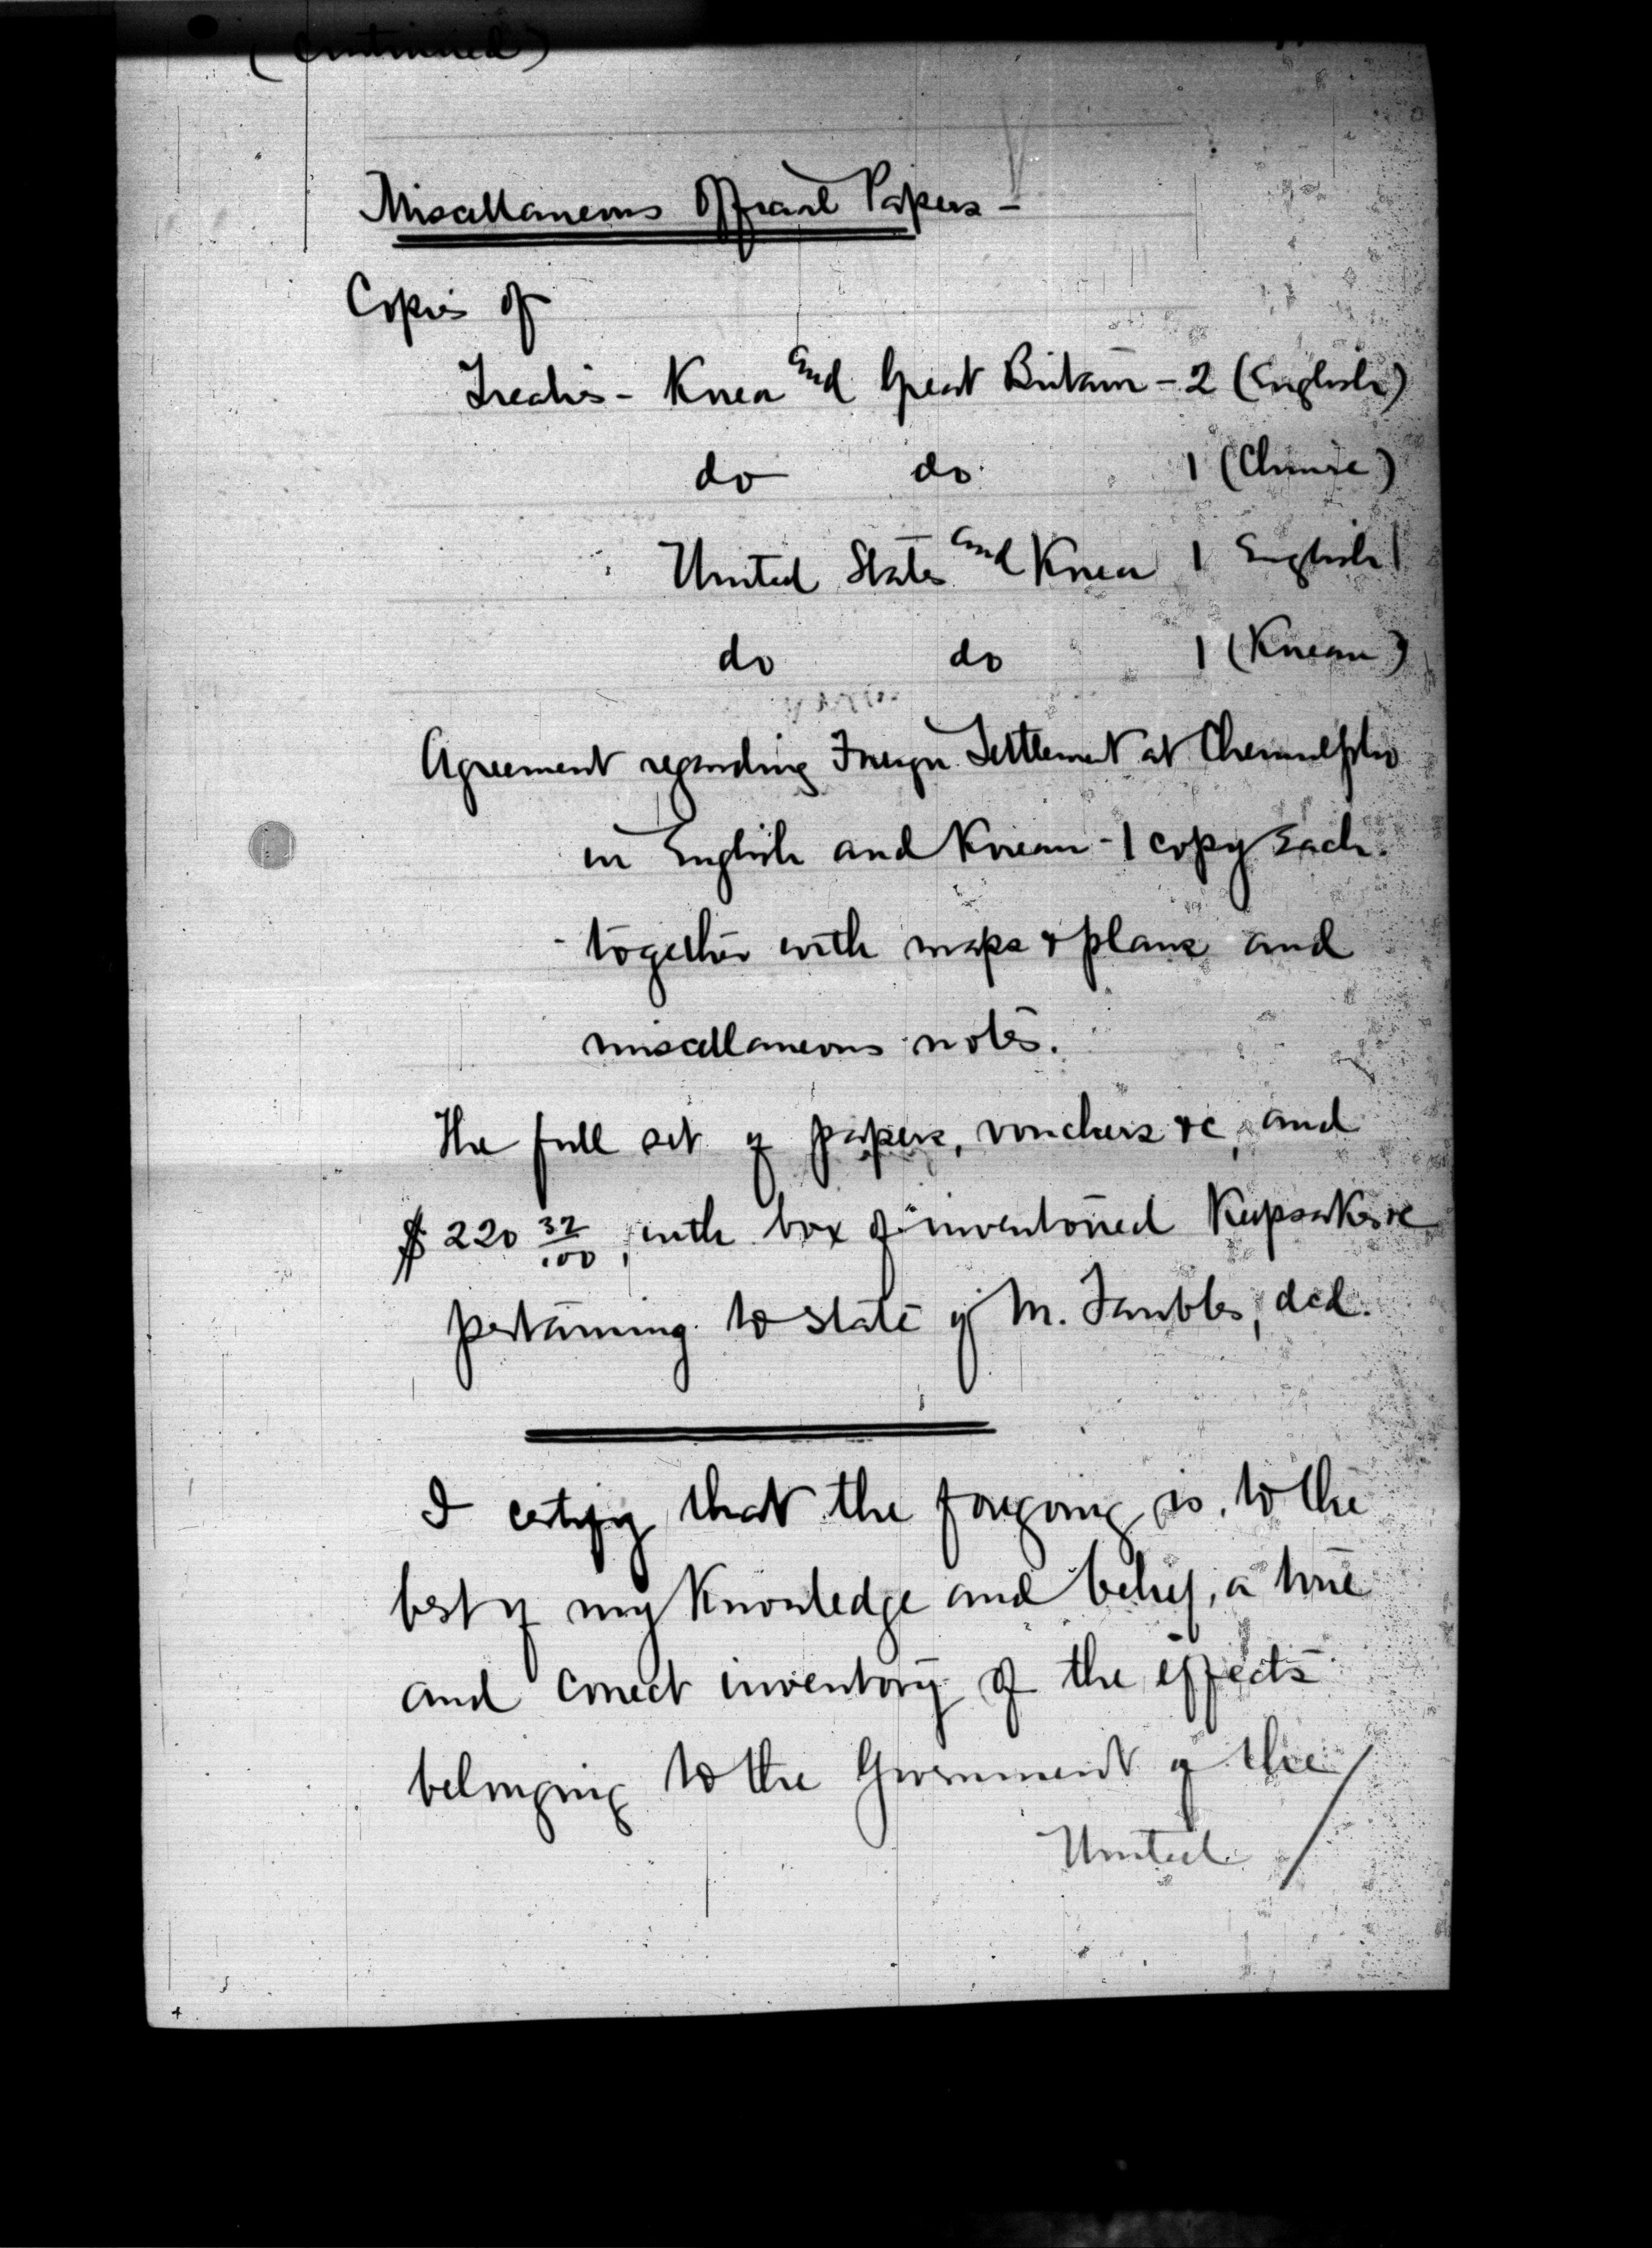 (Continued)
Miscellaneous Official Papers -
Copies of
Treaties - Korea and Great Britain - 2 (English)
do do 1 (Chinese)
United States and Korea 1 English)
do do 1 (Korean)
Agreement regarding Foreign Settlement at Chemulpho
in English and Korean - 1 copy Each.
together with maps & plans and
miscellaneous notes.
The full set of papers, vouchers &c, and
$220 32/100, with box of inventoried Keepsakes &c
pertaining to state of M. , dcd.
I certify that the foregoing is, to the
best of my Knowledge and belief, a true
and correct inventory of the effects
belonging to the Government of the
United